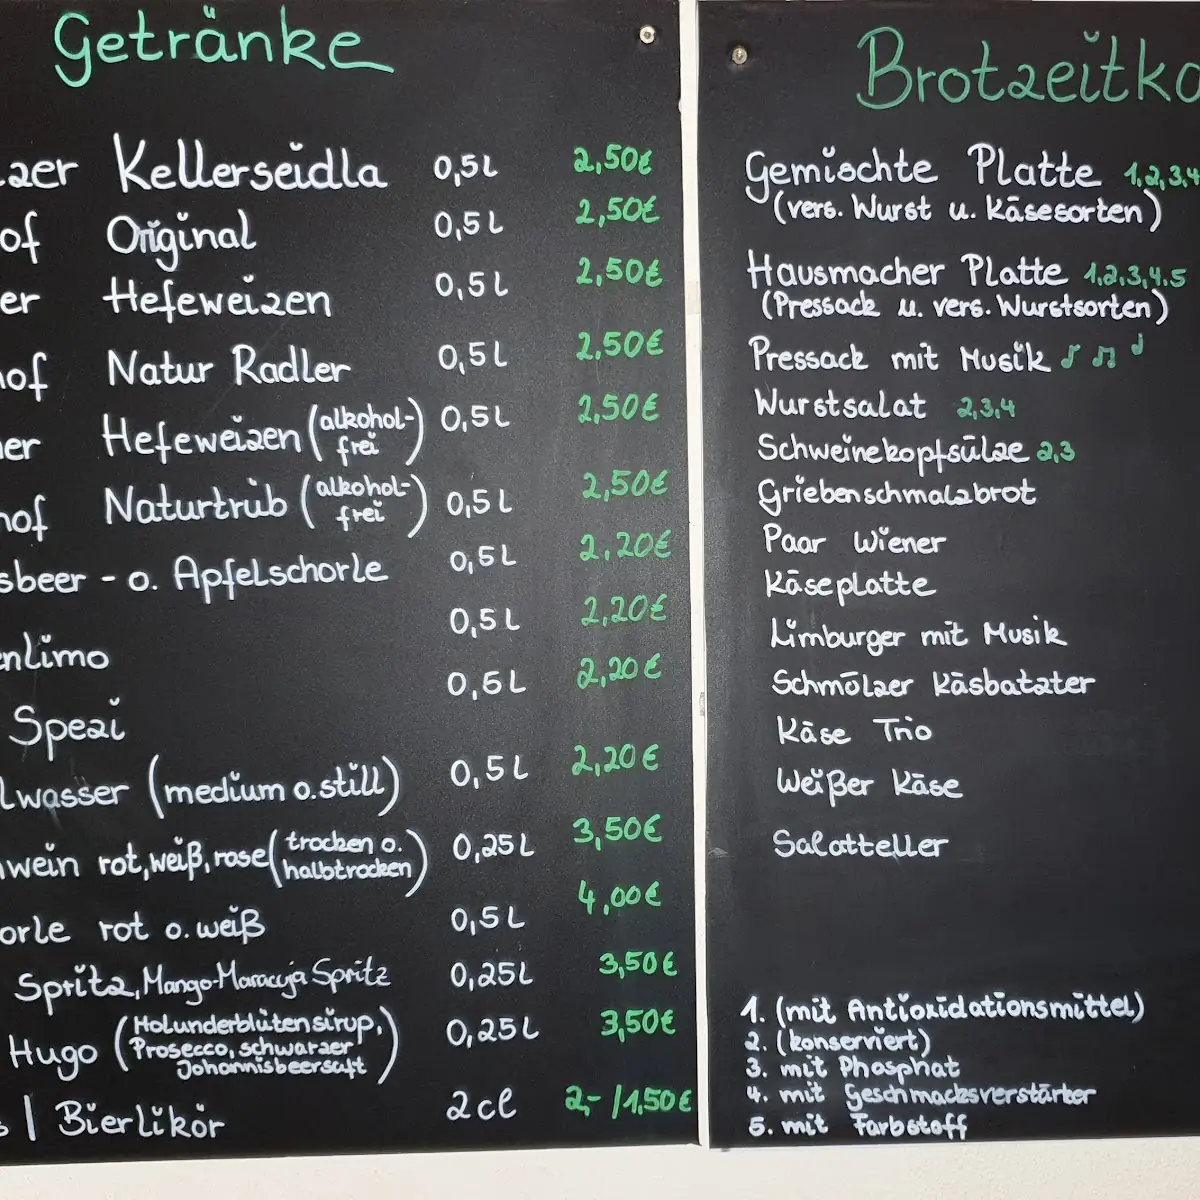 Getränke
zer Kellerseidla 0,5L 2,50€
of Original 0,5L 2,50€
er Hefeweizen 0,5L 2,50€
hof Natur Radler 0,5L 2,50€
ner Hefeweizen (alkohol-frei) 0,5L 2,50€
hof Naturtrüb (alkohol-frei) 0,5L 2,50€
sbeer - o. Apfelschorle 0,5L 2,20€
enlimo 0,5L 2,20€
Spezi 0,5L 2,20€
lwasser (medium o. still) 0,5L 2,20€
wein rot, weiß, rose (trocken o. halbtrocken) 0,25L 3,50€
orle rot o. weiß 0,5L 4,00€
Spritz, Mango-Maracuja Spritz 0,25L 3,50€
Hugo (Holunderblütensirup, Prosecco, schwarzer Johannisbeersaft) 0,25L 3,50€
s / Bierlikör 2cl 2,- / 1,50€
Brotzeitka
Gemischte Platte 1,2,3,4
(vers. Wurst u. Käsesorten)
Hausmacher Platte 1,2,3,4.5
(Pressack u. vers. Wurstsorten)
Pressack mit Musik
Wurstsalat 2,3,4
Schweinekopfsülze 2,3
Griebenschmalzbrot
Paar Wiener
Käseplatte
Limburger mit Musik
Schmölzer Käsbatzter
Käse Trio
Weißer Käse
Salatteller
1. (mit Antioxidationsmittel)
2. (konserviert)
3. mit Phosphat
4. mit Geschmacksverstärker
5. mit Farbstoff